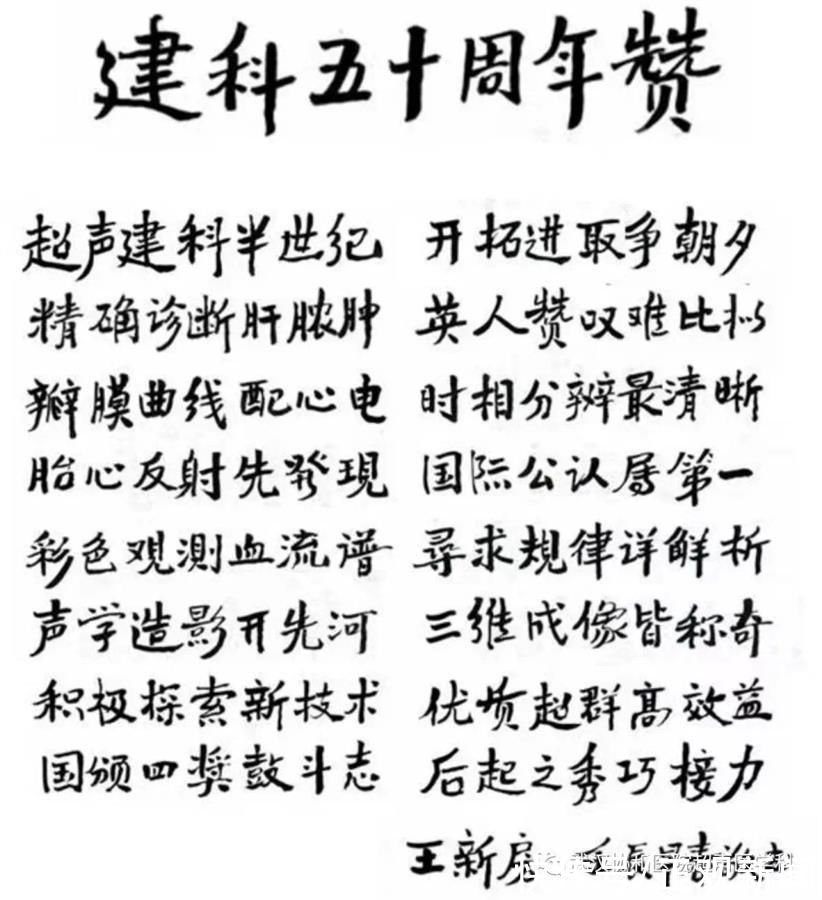 建科五十周年赞
超声建科半世纪 开拓进取争朝夕
精确诊断肝脓肿 英人赞叹难比拟
瓣膜曲线配心电 时相分辨最清晰
胎心反射先發現 国际公认属第一
彩色观测血流谱 尋求規律详解析
声学造影开先河 三维成像皆称奇
积极探索新技术 优质超群高效益
国颁四奖鼓斗志 后起之秀巧接力
王新房